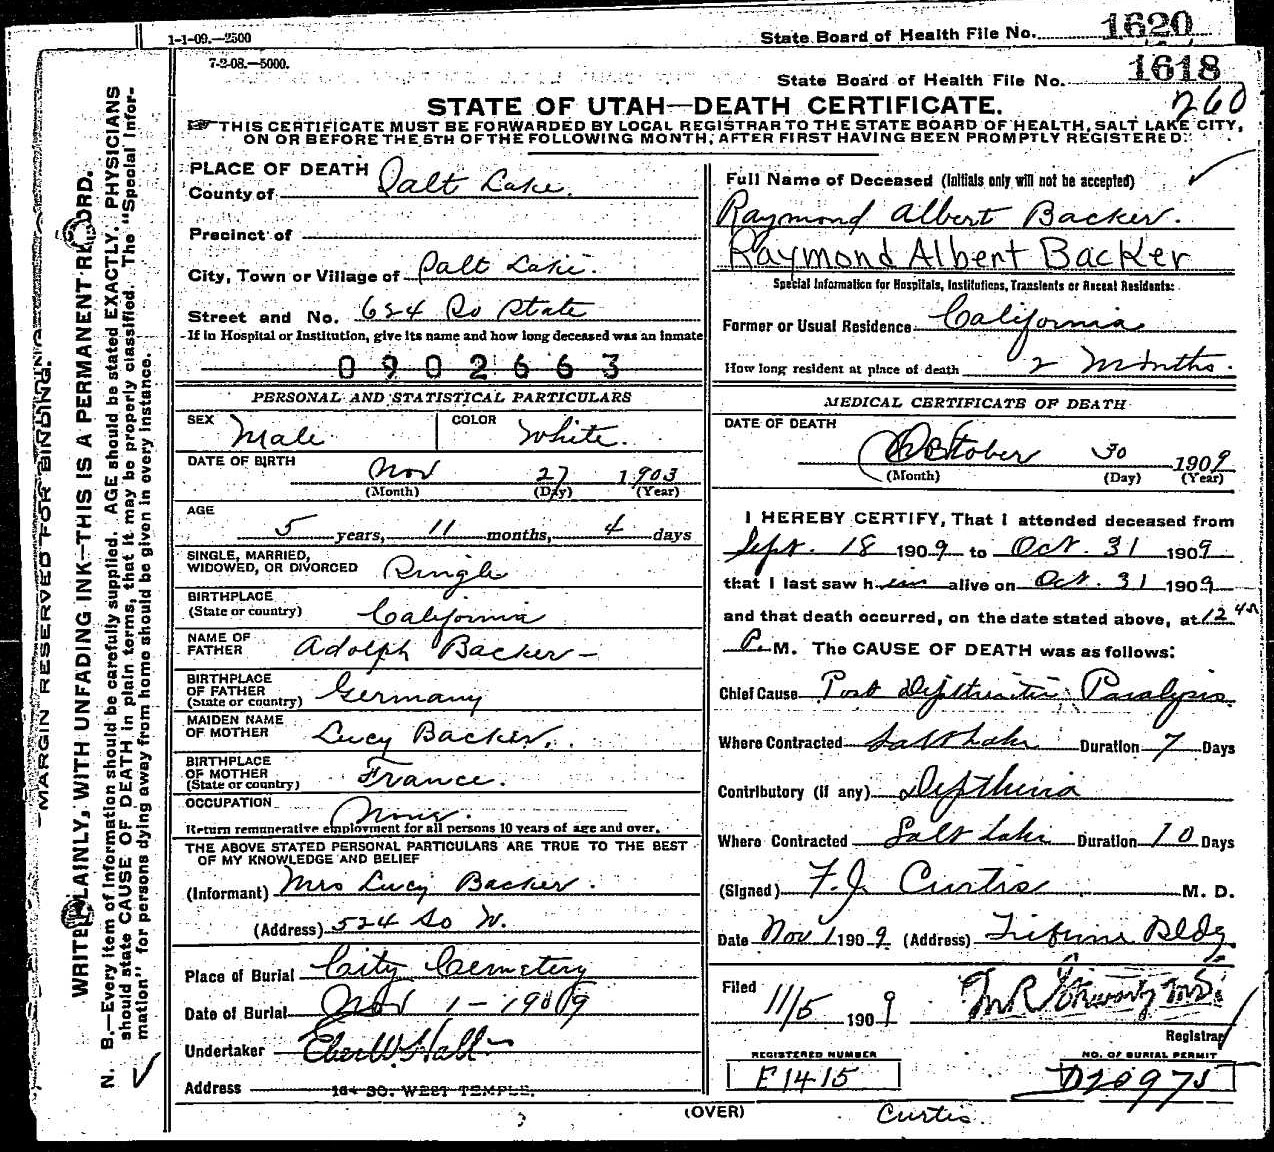 1-1-09.—2500
State Board of Health File No. 1620
7-2-08.—5000.
State Board of Health File No. 1618
260
STATE OF UTAH—DEATH CERTIFICATE.
THIS CERTIFICATE MUST BE FORWARDED BY LOCAL REGISTRAR TO THE STATE BOARD OF HEALTH, SALT LAKE CITY,
ON OR BEFORE THE 5TH OF THE FOLLOWING MONTH, AFTER FIRST HAVING BEEN PROMPTLY REGISTERED.
MARGIN RESERVED FOR BINDING.
WRITE PLAINLY, WITH UNFADING INK—THIS IS A PERMANENT RECORD.
N. B.—Every item of information should be carefully supplied. AGE should be stated EXACTLY. PHYSICIANS
should state CAUSE OF DEATH in plain terms, that it may be properly classified. The "Special Infor-
mation" for persons dying away from home should be given in every instance.
PLACE OF DEATH
County of Salt Lake.
Precinct of
City, Town or Village of Salt Lake.
Street and No. 624 So State
If in Hospital or Institution, give its name and how long deceased was an inmate
0902663
PERSONAL AND STATISTICAL PARTICULARS
SEX Male COLOR White.
DATE OF BIRTH Nov 27 1903
(Month) (Day) (Year)
AGE
5 years, 11 months, 4 days
SINGLE, MARRIED,
WIDOWED, OR DIVORCED Single
BIRTHPLACE
(State or country) California
NAME OF
FATHER Adolph Backer
BIRTHPLACE
OF FATHER
(State or country) Germany
MAIDEN NAME
OF MOTHER Lucy Backer.
BIRTHPLACE
OF MOTHER
(State or country) France.
OCCUPATION None.
Return remunerative employment for all persons 10 years of age and over.
THE ABOVE STATED PERSONAL PARTICULARS ARE TRUE TO THE BEST
OF MY KNOWLEDGE AND BELIEF
(Informant) Mrs Lucy Backer.
(Address) 524 So W.
Place of Burial City Cemetery
Date of Burial Nov 1-1909
Undertaker Eber W. Hall
Address 164 SO. WEST TEMPLE.
Full Name of Deceased (Initials only will not be accepted)
Raymond Albert Backer.
Raymond Albert Backer
Special Information for Hospitals, Institutions, Transients or Recent Residents:
Former or Usual Residence California
How long resident at place of death 2 Months.
MEDICAL CERTIFICATE OF DEATH
DATE OF DEATH
October 30 1909
(Month) (Day) (Year)
I HEREBY CERTIFY, That I attended deceased from
Sept. 18 1909 to Oct. 31 1909
that I last saw him alive on Oct. 31 1909
and that death occurred, on the date stated above, at 12 45
P. M. The CAUSE OF DEATH was as follows:
Chief Cause Post Diphtheritic Paralysis
Where Contracted Salt Lake Duration 7 Days
Contributory (if any) Diptheria
Where Contracted Salt Lake Duration 10 Days
(Signed) F. J. Curtis M. D.
Date Nov 1 1909 (Address) Tribune Bldg.
Filed 11/5 1909
Registrar
REGISTERED NUMBER
E1415
NO. OF BURIAL PERMIT
D20975
(OVER)
Curtis.